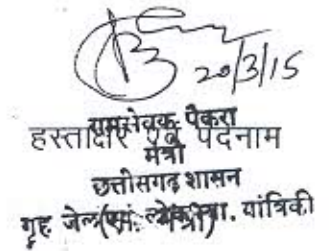 20/3/15
रामसेवक पैकरा
हस्ताक्षर एवं पदनाम
मंत्री
छत्तीसगढ़ शासन
गृह जेल एवं लोक स्वा. यांत्रिकी
(मंत्री)